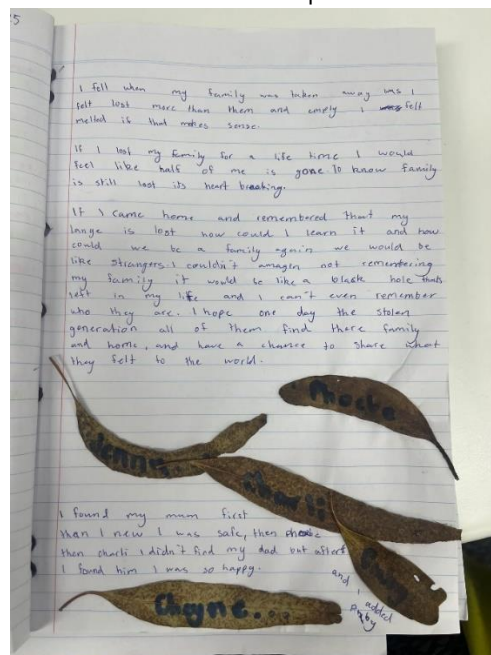 I fell when my family was taken away was I
felt lost more than them and empty I felt
melted if that makes sense.
If I lost my family for a life time I would
feel like half of me is gone to know family
is still lost its heart breaking.
If I came home and remembered that my
lange is lost how could I learn it and how
could we be a family again we would be
like strangers. I couldn't amagin not remembering
my family it would be like a black hole thats
left in my life and I can't even remember
who they are. I hope one day the stolen
generation all of them find there family
and home, and have a chance to share what
they felt to the world.
Phoebe
Jenny.
Charli
I found my mum first
than I new I was safe, then phoebe
then charli I didn't find my dad but after
I found him I was so happy.
and I added
Ruby
Chayne.